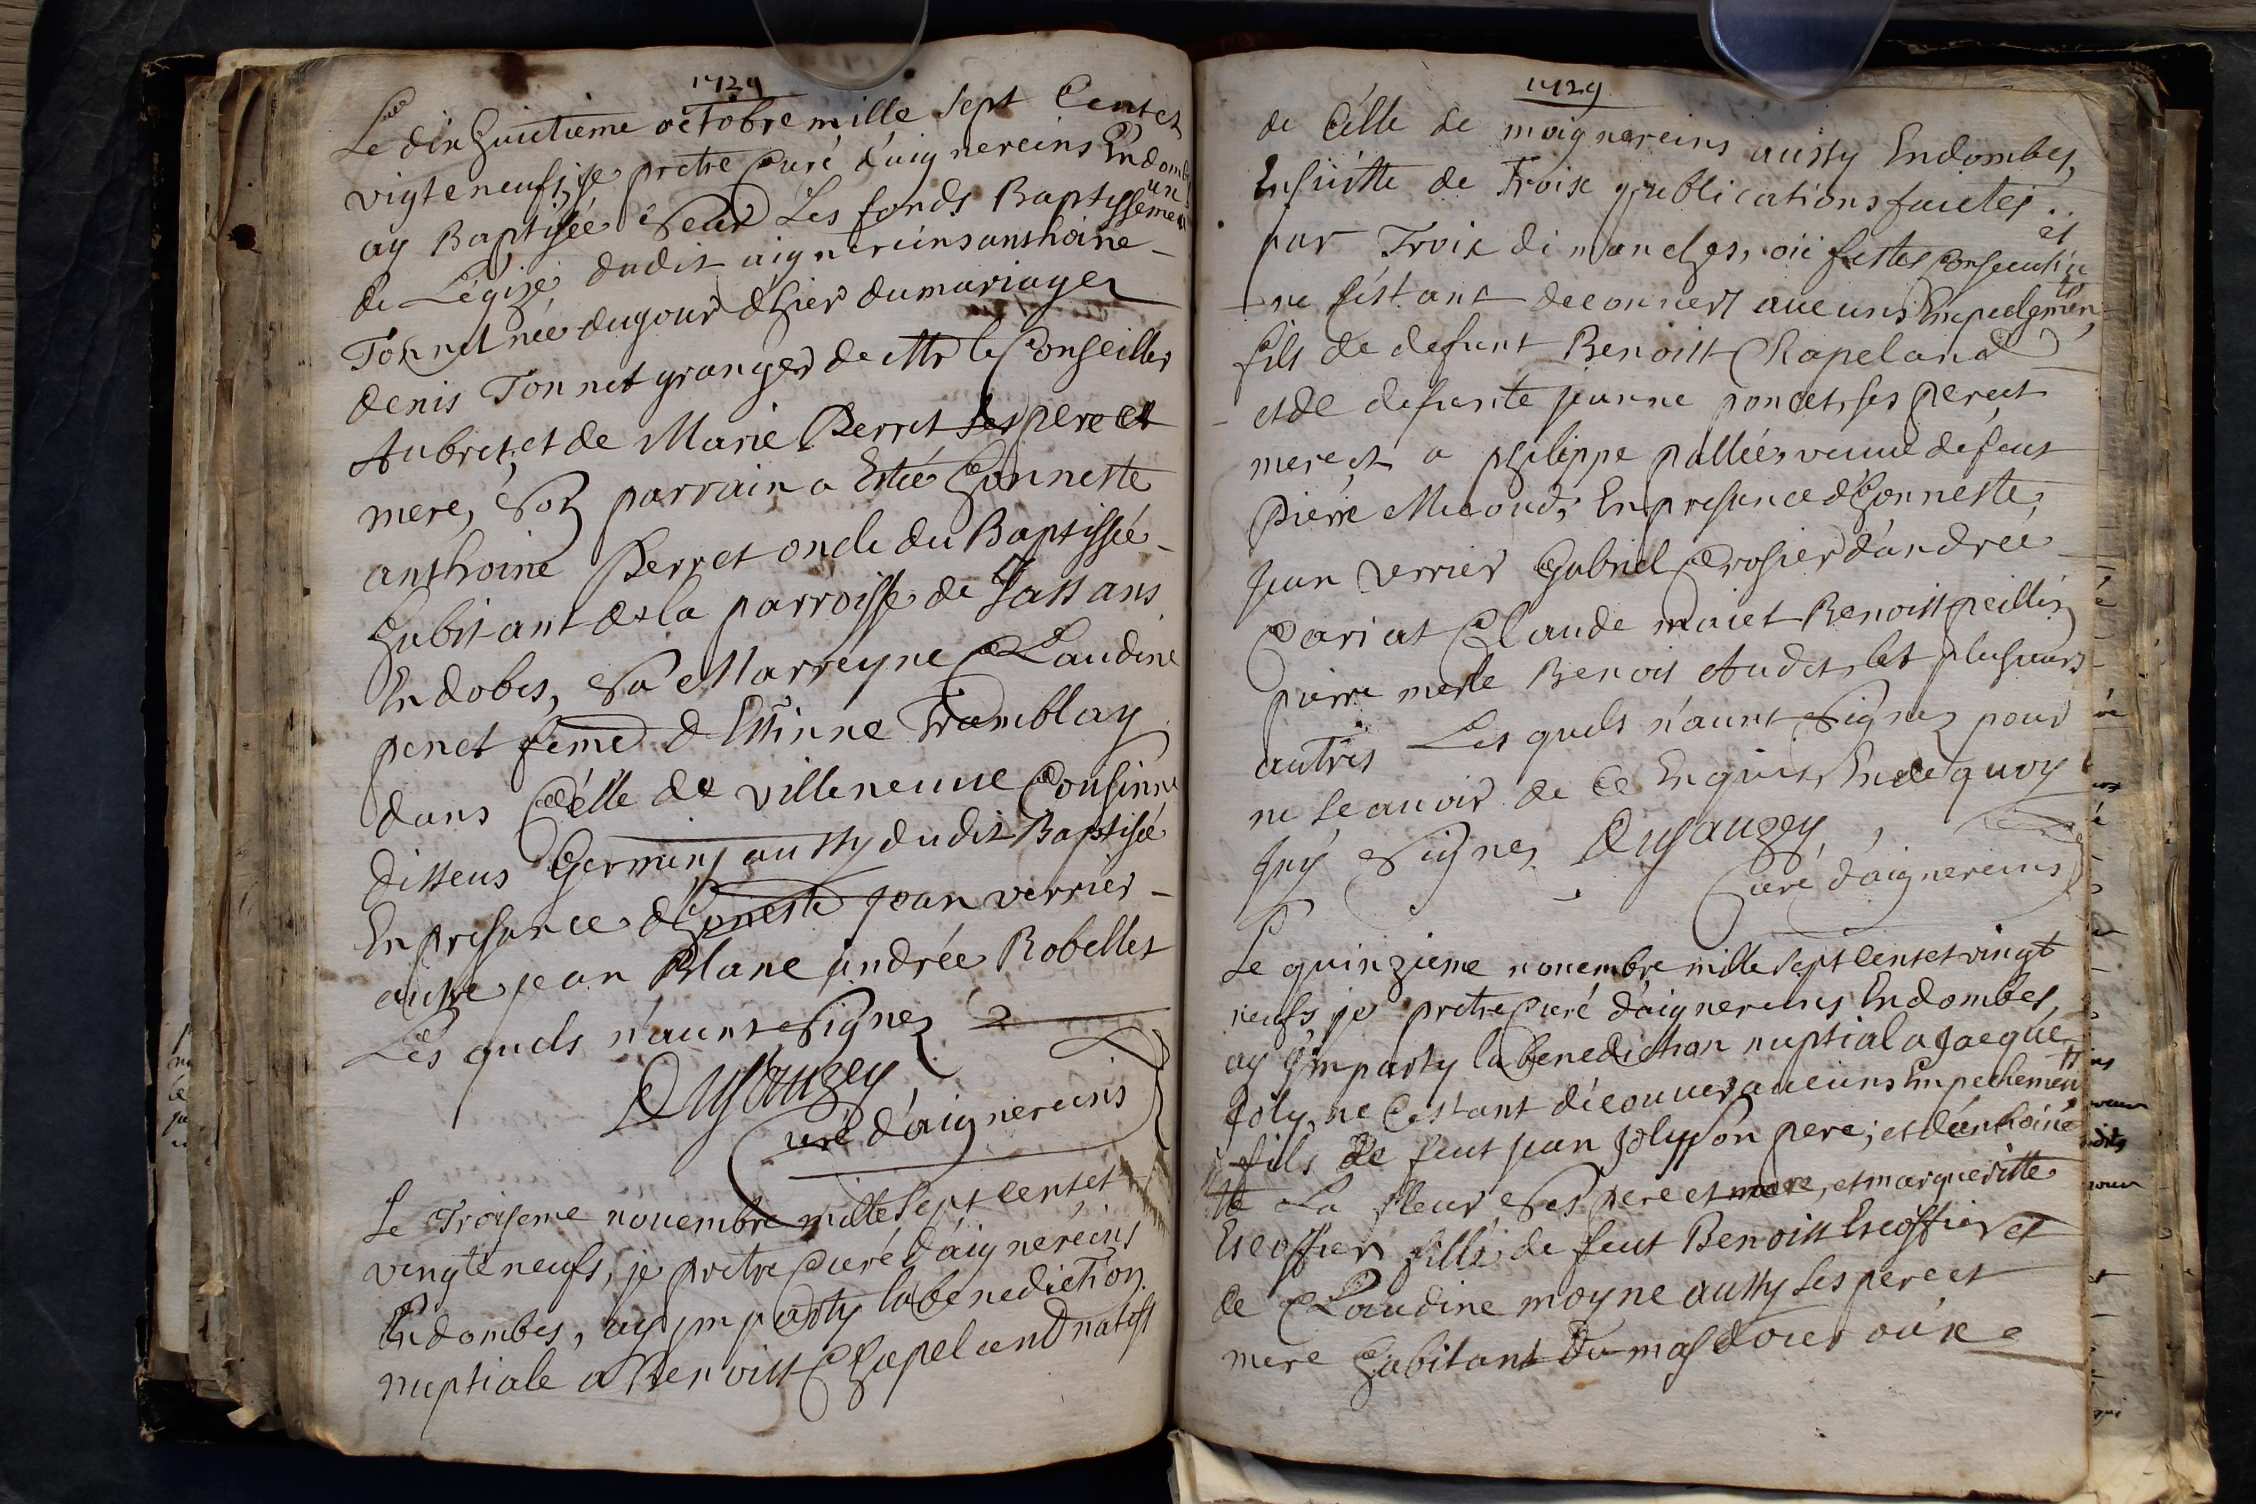 1729
Le dix huictieme octobre mille sept Cent et
vigt e neufs, je pretre Curé d'aignereins En domb
ay Baptisée Seur Les fonds Baptissemeaux
de L'égize dudit aignereins anthoine
Tonnet née du jour d'hier du mariage
denis Tonnet granger de Mr le Conseiller
Aubret, et de Marie Perret ses pere et
mere, Son parrain a Estée honneste
anthoine Perret oncle du Baptissée
habitant de la parroisse de Jassans
En dobes, Sa Marreyne Claudine
penet feme d'Etienne Tramblay
dans Célle de villeneuve Cousinne
disseus Germins aussy dudit Baptisé
En presance d'honeste jean verrier
autre jean Blanc andrée Robellet
Les quels n'aunt Signez
Dusauzey
Curé d'aignereins
Le Troiseme nouembre mille Sept cent et
vingt e neufs, je pretre Curé d'aignéréins
En dombes, ay jmparty la benediction
nuptiale a Benoist Chapeland natif
1729
de Célle de moignereins aussy En dombes,
En suitte de Troix publications faictes
par Troix dimanches, ou festes consecutives et
ne s'éstant decouuert aucuns Empechemen,
fils de defunt Benoist Chapeland
et de defunte jeanne poncet, ses pere et
mere, et a philippe pallée veuue de feut
Pierre Micoud, En presence d'honneste,
jean verrier Gabriel Crosier d'andrée
Cariat Claude maiet Benoist peillis
pierre merle Benoit Audet, et plusieurs
autres Les quels n'aunt Signez pour
ne Scauoir de ce Enquis, En de quoy
j'ay Signez Dusauzey,
Curé d'aignereins
Le quinzieme nouembre mille Sept cent et vingt
neufs, je pretre Curé d'aignereins En dombes,
ay jmparty la benediction nuptial a Jacque
Joly, ne C'estant découuer aucuns Empechement
fils de feut jean Joly son pere, et d'anthoine
tte La fleur Ses pere et mere, et margueritte
Escoffier fille de feut Benoist Escoffier et
de Claudine moyne aussy Ses pere et
mere habitant du mas